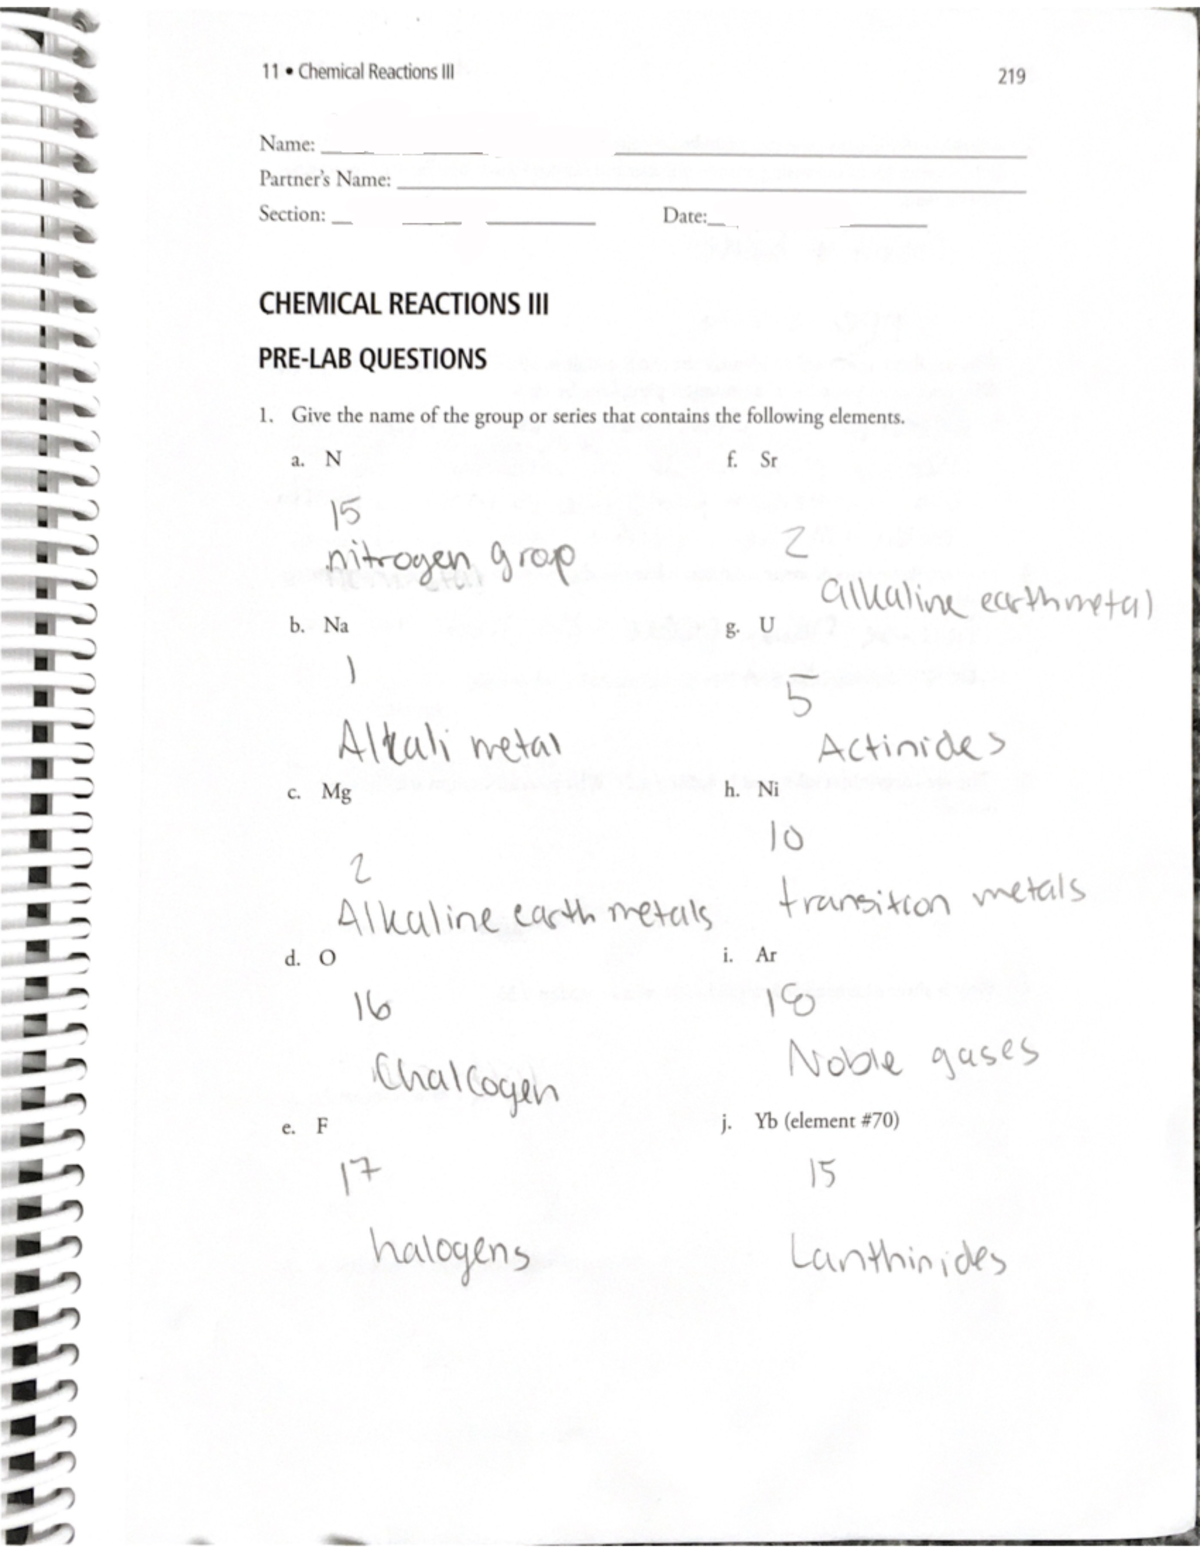 11 • Chemical Reactions III
219
Name:
Partner's Name:
Section:
Date:
CHEMICAL REACTIONS III
PRE-LAB QUESTIONS
1. Give the name of the group or series that contains the following elements.
a. N
15
nitrogen grop
b. Na
1
Alkali metal
c. Mg
2
Alkaline earth metals
d. O
16
Chalcogen
e. F
17
halogens
f. Sr
2
alkaline earthmetal
g. U
5
Actinides
h. Ni
10
transition metals
i. Ar
18
Noble gases
j. Yb (element #70)
15
Lanthinides